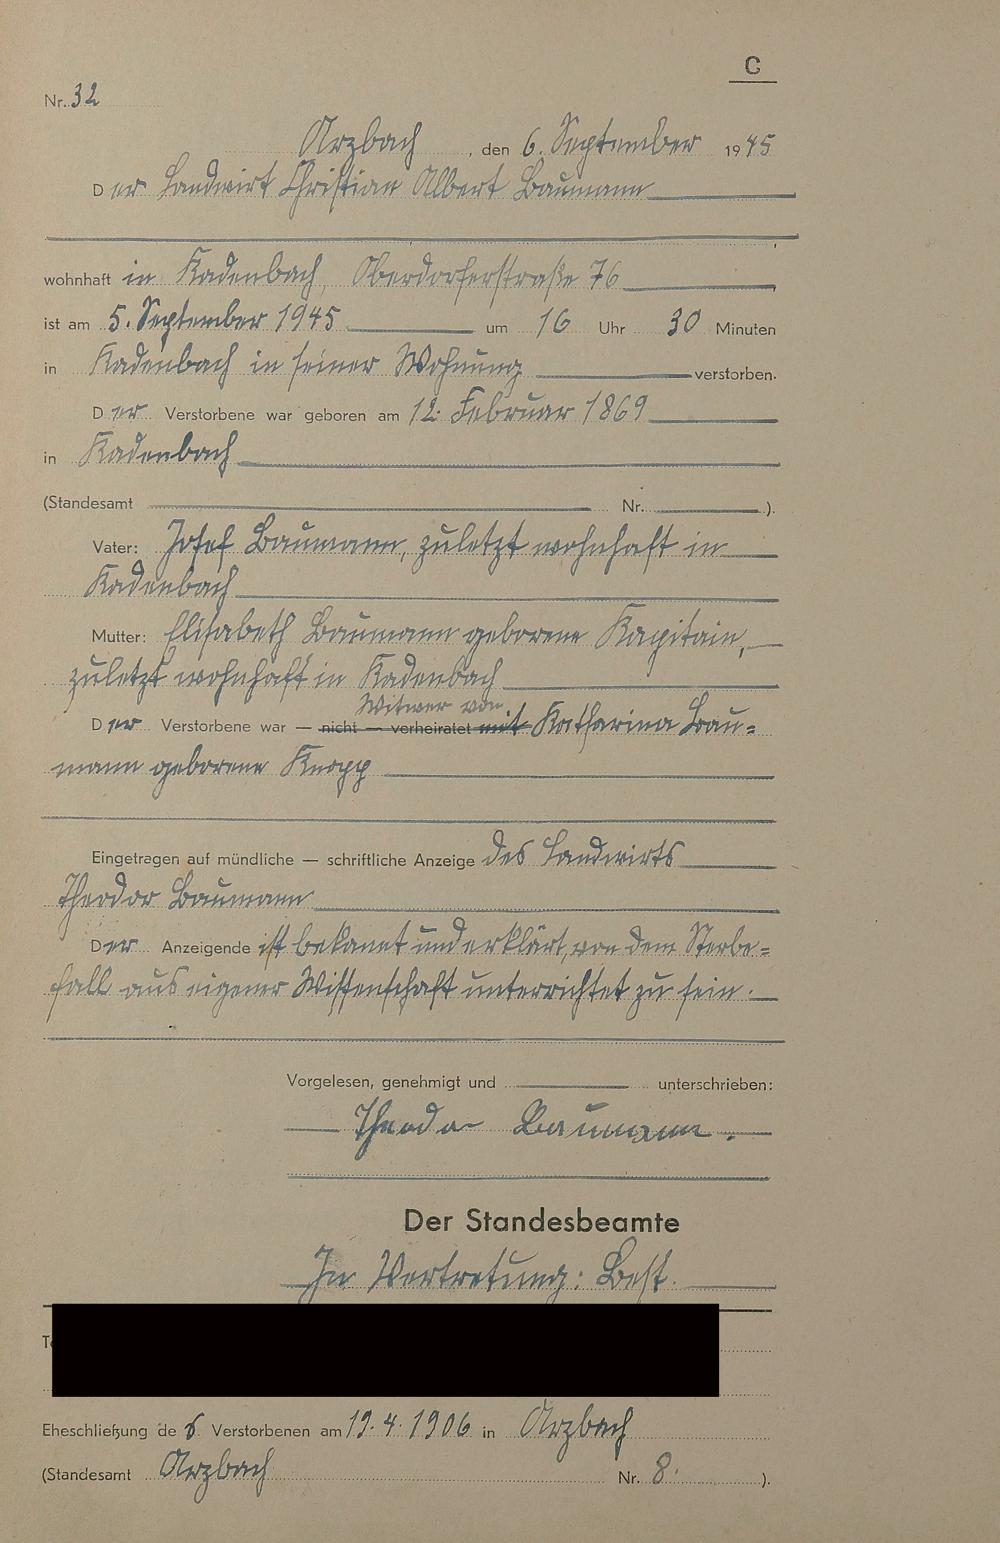 C
Nr. 32
Arzbach, den 6. September 1945
Der Landwirt Christian Albert Baumann
wohnhaft in Kadenbach, Oberdorferstraße 76
ist am 5. September 1945 um 16 Uhr 30 Minuten
in Kadenbach in seiner Wohnung verstorben.
Der Verstorbene war geboren am 12. Februar 1869
in Kadenbach
(Standesamt Nr. ).
Vater: Josef Baumann, zuletzt wohnhaft in
Kadenbach
Mutter: Elisabeth Baumann geborene Kapitain,
zuletzt wohnhaft in Kadenbach
Witwer von
Der Verstorbene war — nicht — verheiratet mit Katharina Bau=
mann geborene Knopp
Eingetragen auf mündliche — schriftliche Anzeige des Landwirts
Theodor Baumann
Der Anzeigende ist bekannt und erklärt, von dem Sterbe=
fall aus eigener Wissenschaft unterrichtet zu sein.
Vorgelesen, genehmigt und unterschrieben:
Theodor Baumann.
Der Standesbeamte
In Vertretung: Best.
Eheschließung des Verstorbenen am 19.4.1906 in Arzbach
(Standesamt Arzbach Nr. 8. ).